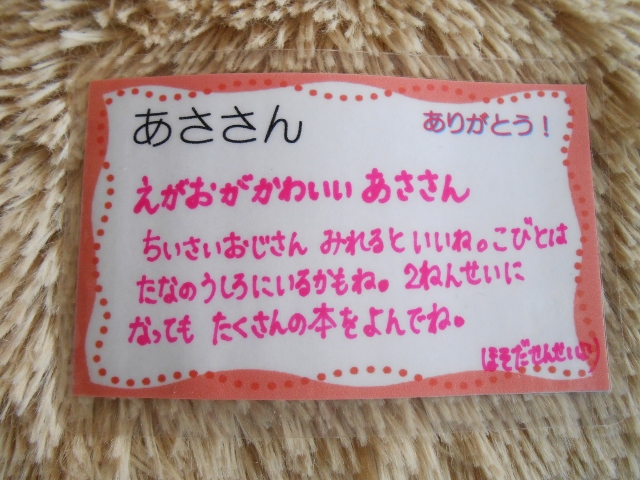 あささん
ありがとう！
えがおがかわいい あささん
ちいさいおじさん みれるといいね。こびとは
たなのうしろにいるかもね。2ねんせいに
なっても たくさんの本をよんでね。
ほそだせんせい